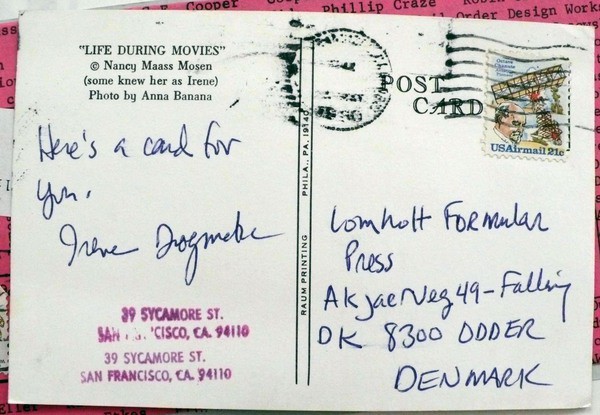 "LIFE DURING MOVIES"
© Nancy Maass Mosen
(some knew her as Irene)
Photo by Anna Banana
Here's a card for
you.
Irene Dogmatic
39 SYCAMORE ST.
SAN CISCO, CA. 94110
39 SYCAMORE ST.
SAN FRANCISCO, CA. 94110
RAUM PRINTING PHILA., PA. 19140
POST
CARD
USAirmail 21c
Lomholt Formular
Press
Akjaervej 49-Falling
DK 8300 ODDER
DENMARK
Cooper
Phillip Craze
Order Design Works